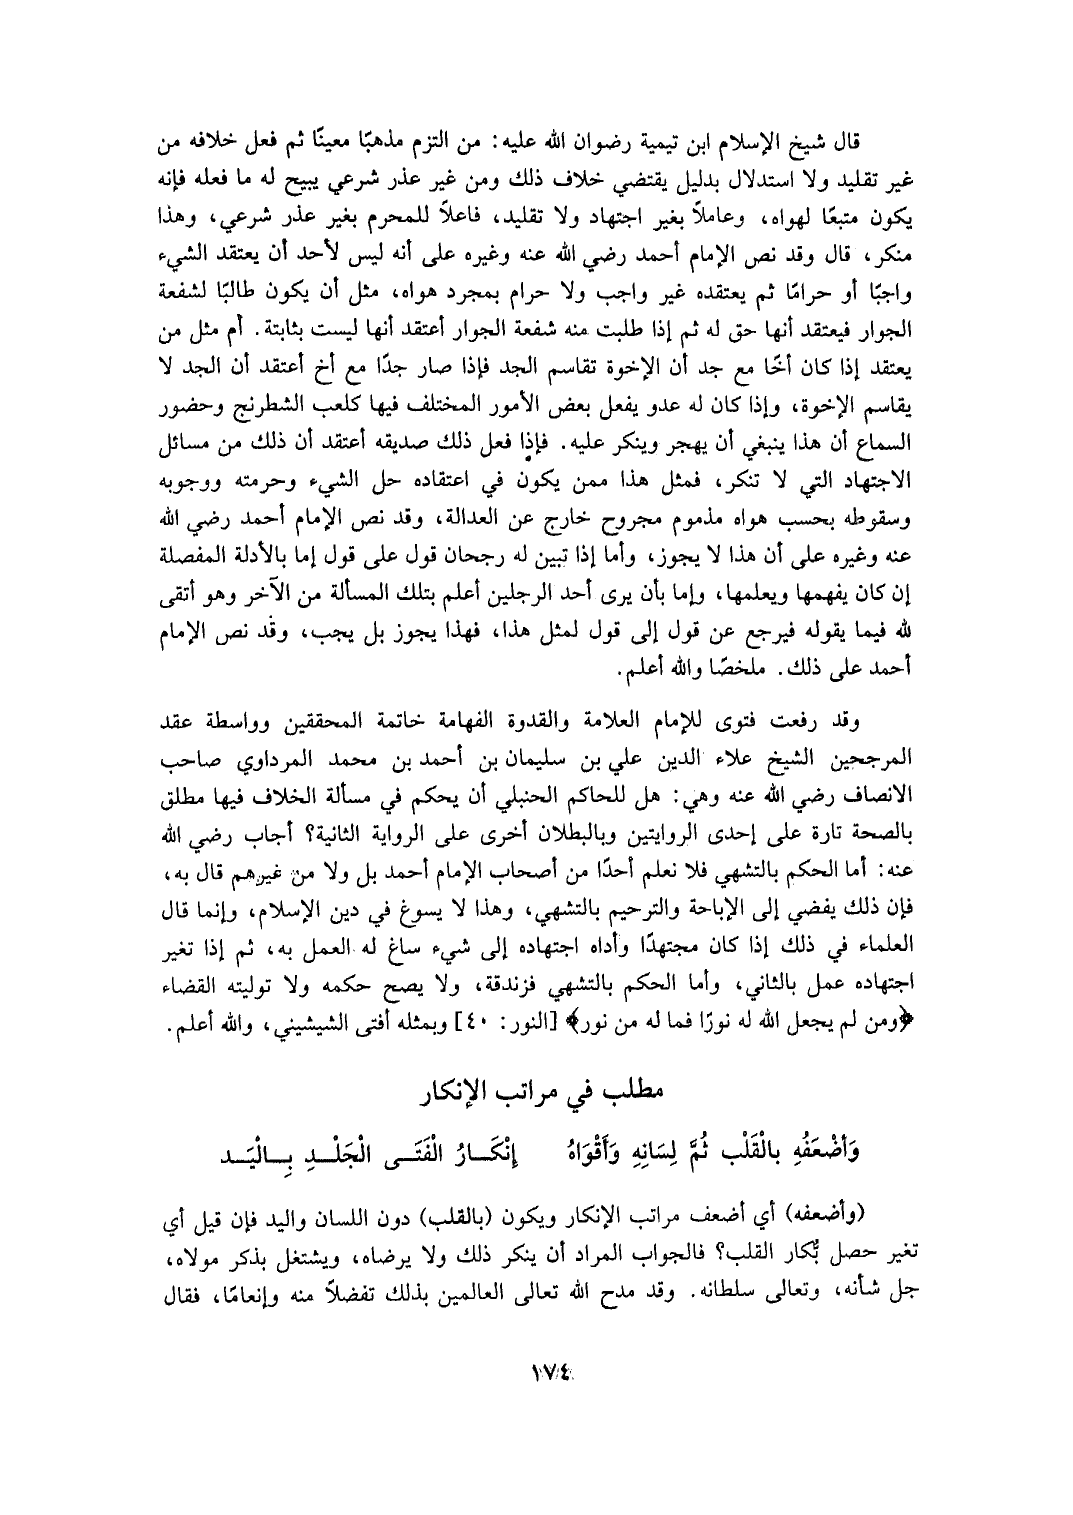 قال شيخ الإسلام ابن تيمية رضوان الله عليه: من التزم مذهبًا معينًا ثم فعل خلافه من
غير تقليد ولا استدلال بدليل يقتضي خلاف ذلك ومن غير عذر شرعي يبيح له ما فعله فإنه
يكون متبعًا لهواه، وعاملاً بغير اجتهاد ولا تقليد، فاعلاً للمحرم بغير عذر شرعي، وهذا
منكر، قال وقد نص الإمام أحمد رضي الله عنه وغيره على أنه ليس لأحد أن يعتقد الشيء
واجبًا أو حرامًا ثم يعتقده غير واجب ولا حرام بمجرد هواه، مثل أن يكون طالبًا لشفعة
الجوار فيعتقد أنها حق له ثم إذا طلبت منه شفعة الجوار أعتقد أنها ليست بثابتة. أم مثل من
يعتقد إذا كان أخًا مع جد أن الإخوة تقاسم الجد فإذا صار جدًا مع أخ أعتقد أن الجد لا
يقاسم الإخوة، وإذا كان له عدو يفعل بعض الأمور المختلف فيها كلعب الشطرنج وحضور
السماع أن هذا ينبغي أن يهجر وينكر عليه. فإذا فعل ذلك صديقه أعتقد أن ذلك من مسائل
الاجتهاد التي لا تنكر، فمثل هذا ممن يكون في اعتقاده حل الشيء وحرمته ووجوبه
وسقوطه بحسب هواه مذموم مجروح خارج عن العدالة، وقد نص الإمام أحمد رضي الله
عنه وغيره على أن هذا لا يجوز، وأما إذا تبين له رجحان قول على قول إما بالأدلة المفصلة
إن كان يفهمها ويعلمها، وإما بأن يرى أحد الرجلين أعلم بتلك المسألة من الآخر وهو أتقى
لله فيما يقوله فيرجع عن قول إلى قول لمثل هذا، فهذا يجوز بل يجب، وقد نص الإمام
أحمد على ذلك. ملخصًا والله أعلم.
وقد رفعت فتوى للإمام العلامة والقدوة الفهامة خاتمة المحققين وواسطة عقد
المرجحين الشيخ علاء الدين علي بن سليمان بن أحمد بن محمد المرداوي صاحب
الانصاف رضي الله عنه وهي: هل للحاكم الحنبلي أن يحكم في مسألة الخلاف فيها مطلق
بالصحة تارة على إحدى الروايتين وبالبطلان أخرى على الرواية الثانية؟ أجاب رضي الله
عنه: أما الحكم بالتشهي فلا نعلم أحدًا من أصحاب الإمام أحمد بل ولا من غيرهم قال به،
فإن ذلك يفضي إلى الإباحة والترحيم بالتشهي، وهذا لا يسوغ في دين الإسلام، وإنما قال
العلماء في ذلك إذا كان مجتهدًا وأداه اجتهاده إلى شيء ساغ له العمل به، ثم إذا تغير
اجتهاده عمل بالثاني، وأما الحكم بالتشهي فزندقة، ولا يصح حكمه ولا توليته القضاء
﴿ومن لم يجعل الله له نورًا فما له من نور﴾ [النور: ٤٠] وبمثله أفتى الشيشيني، والله أعلم.
مطلب في مراتب الإنكار
وَأَضْعَفُهِ بالْقَلْب ثُمَّ لِسَانِهِ وَأَقْوَاهُ إنْكَـارُ الْفَتَـى الْجَلْـدِ بِـالْيَـد
(وأضعفه) أي أضعف مراتب الإنكار ويكون (بالقلب) دون اللسان واليد فإن قيل أي
تغير حصل بُكار القلب؟ فالجواب المراد أن ينكر ذلك ولا يرضاه، ويشتغل بذكر مولاه،
جل شأنه، وتعالى سلطانه. وقد مدح الله تعالى العالمين بذلك تفضلاً منه وإنعامًا، فقال
١٧٤